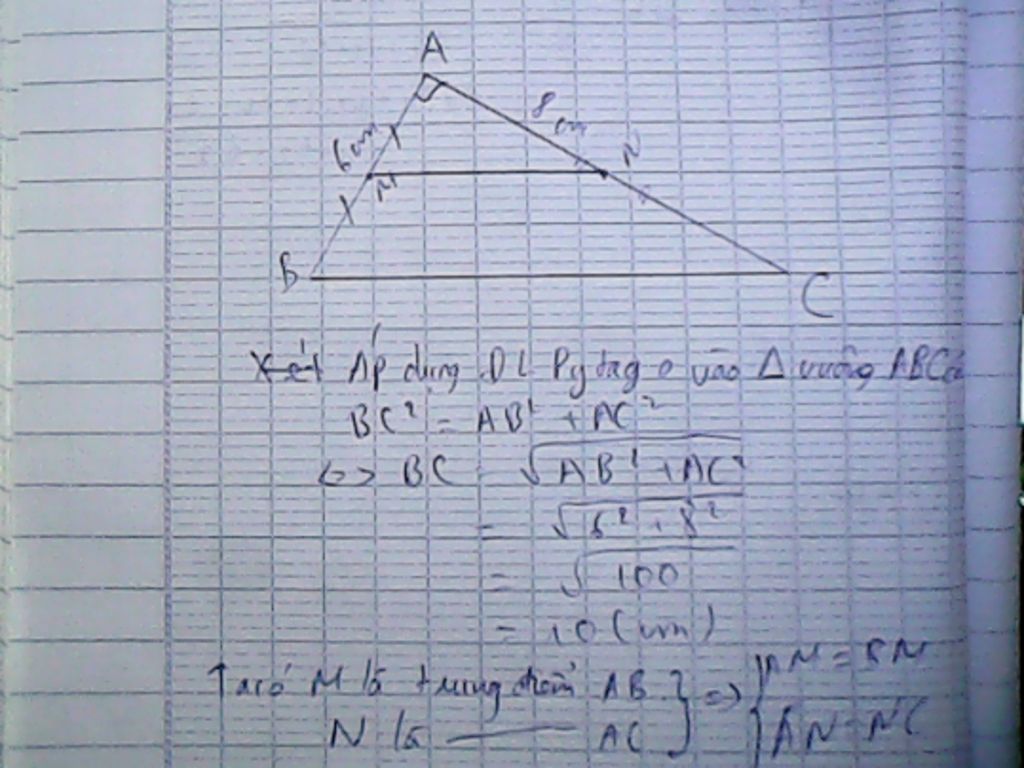 A
6cm
8 cm
M
N
B
C
Áp dụng DL Pytago vào Δ vuông ABC có
BC² = AB² + AC²
<=> BC = √AB² + AC²
= √6² + 8²
= √100
= 10 (cm)
Ta có M là trung điểm AB } => { AM = BM
N là —— AC } { AN = NC